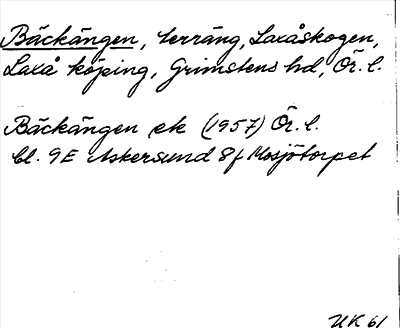 Bäckängen, terräng, Laxåskogen,
Laxå köping, Grimstens hd, Ör. l.
Bäckängen ek (1957) Ör. l.
bl. 9E Askersund 8f Mosjötorpet
UK 61